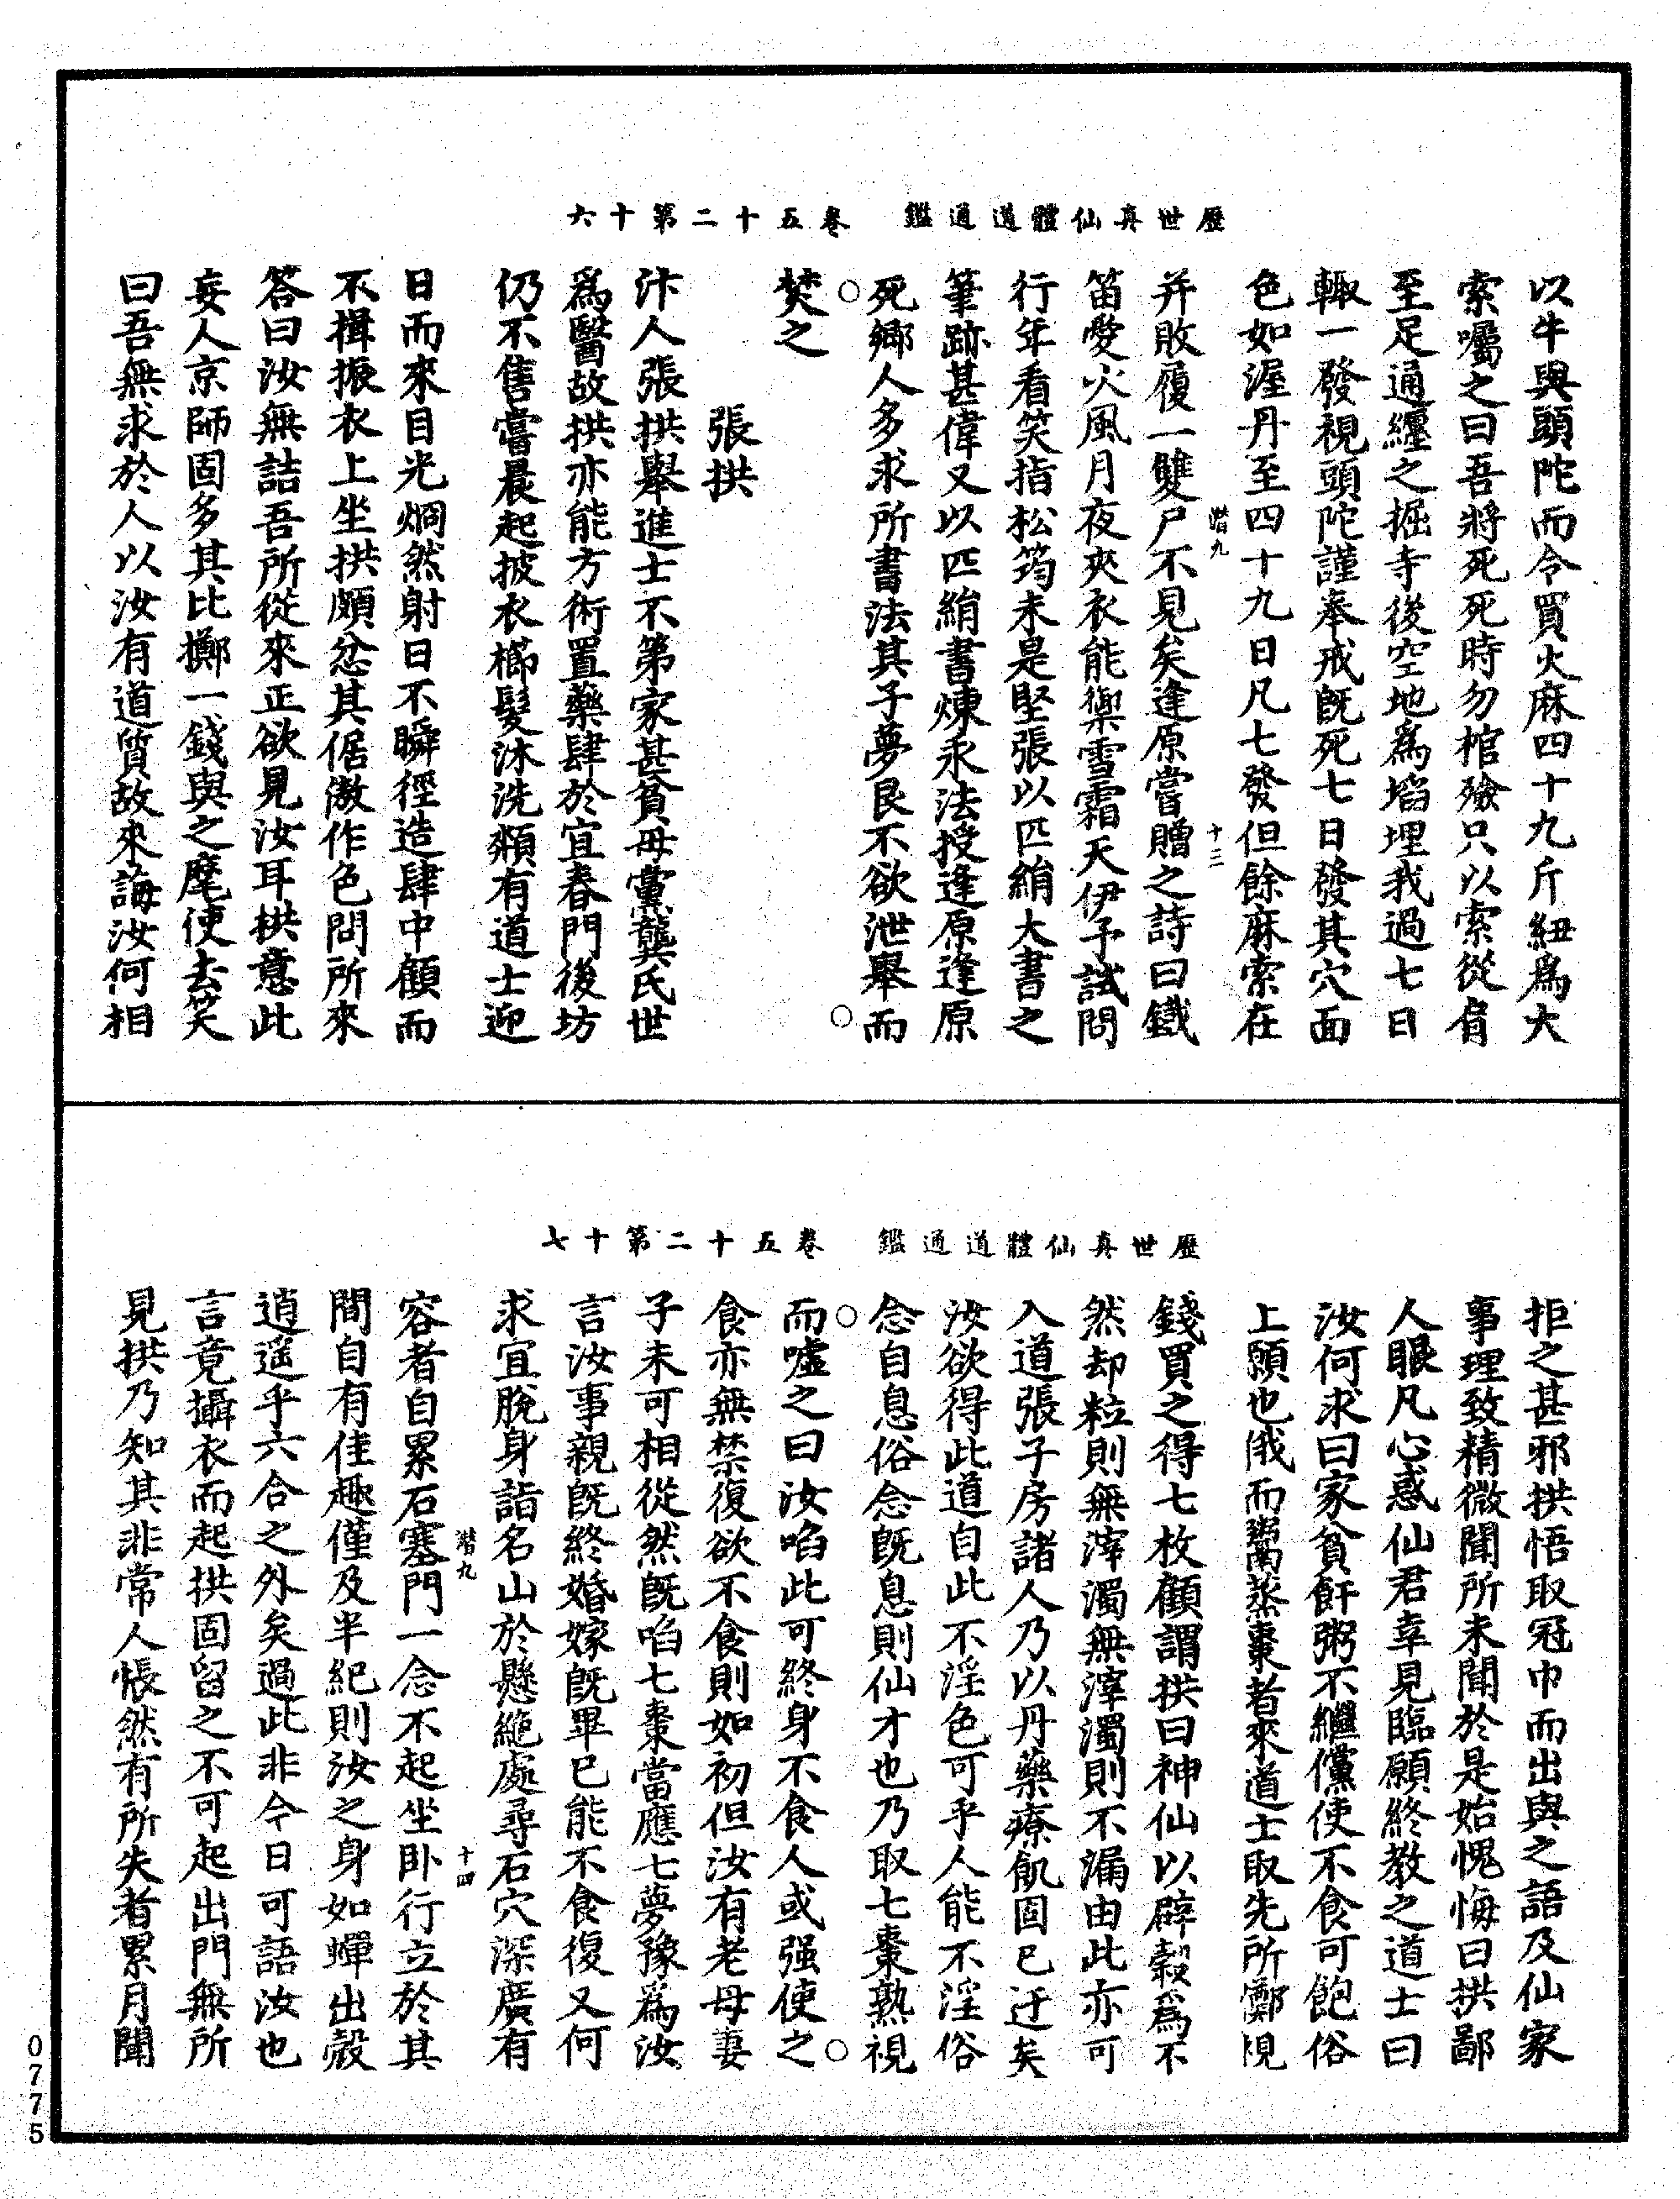 歷世真仙體道通鑑　卷五十二第十六
以牛與頭陀而令買火麻四十九斤紐為大
索囑之曰吾將死死時勿棺殮只以索從肩
至足通纏之掘寺後空地為埳埋我過七日
輙一發視頭陀謹奉戒既死七日發其穴面
色如渥丹至四十九日凡七發但餘麻索在
潜九　十三
并敗履一雙尸不見矣逢原嘗贈之詩曰鐵
笛愛火風月夜夾衣能禦雪霜天伊予試問
行年看笑指松筠未是堅張以匹絹大書之
筆跡甚偉又以匹絹書煉永法授逢原逢原
死鄉人多求所書法其子夢艮不欲泄舉而
焚之
張拱
汴人張拱舉進士不第家甚貧母黨龔氏世
為醫故拱亦能方術置藥肆於宜春門後坊
仍不售嘗晨起披衣櫛髮沐洗頮有道士迎
日而來目光烱然射日不瞬徑造肆中顧而
不揖振衣上坐拱頗忿其倨傲作色問所來
答曰汝無詰吾所從來正欲見汝耳拱意此
妄人京師固多其比擲一錢與之麾使去笑
曰吾無求於人以汝有道質故來誨汝何相
歷世真仙體道通鑑　卷五十二第十七
拒之甚邪拱悟取冠巾而出與之語及仙家
事理致精微聞所未聞於是始愧悔曰拱鄙
人眼凡心惑仙君幸見臨願終教之道士曰
汝何求曰家貧飦粥不繼儻使不食可飽俗
上願也俄而鬻蒸棗者來道士取先所擲
錢買之得七枚顧謂拱曰神仙以辟穀為不
然却粒則無滓濁無滓濁則不漏由此亦可
入道張子房諸人乃以丹藥療飢固已迂矣
汝欲得此道自此不淫色可乎人能不淫俗
念自息俗念既息則仙才也乃取七棗熟視
而噓之曰汝啗此可終身不食人或强使之
食亦無禁復欲不食則如初但汝有老母妻
子未可相從然既啗七棗當應七夢豫為汝
言汝事親既終婚嫁既畢已能不食復又何
求宜脫身詣名山於懸絶處尋石穴深廣有
潜九　十四
容者自累石塞門一念不起坐卧行立於其
間自有佳趣僅及半紀則汝之身如蟬出殼
逍遥乎六合之外矣過此非今日可語汝也
言竟攝衣而起拱固留之不可起出門無所
見拱乃知其非常人悵然有所失者累月聞
0775